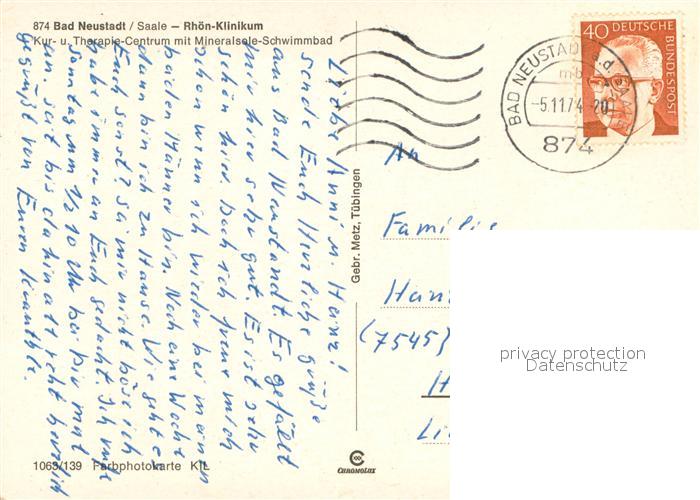 874 Bad Neustadt / Saale – Rhön-Klinikum
Kur- u. Therapie-Centrum mit Mineralsole-Schwimmbad
Liebe Anni u. Heinz!
sende Euch Herzliche grüße
aus Bad Neustandt. Es gefällt
mir hier sehr gut. Es ist sehr
schö hier Doch ich freue mich
schon wenn ich wieder bei meinen
beiden Männer bin. Noch eine Woche
dann bin ich zu Hause. Wie geht es
Euch sonst? Sei mir nicht böse ich
habe immer an Euch gedacht. Ich
Sonntag um 1/2 10 Uhr bei
seit bis dahin all recht herzlich
gegrüßt von Euren
Gebr. Metz, Tübingen
40 DEUTSCHE BUNDESPOST
BAD NEUSTADT a.d. SAALE
mb
-5.11.74-20
874
An
Familie
(7545)
privacy protection
Datenschutz
1063/139 Farbphotokarte K/L
CHROMOLUX